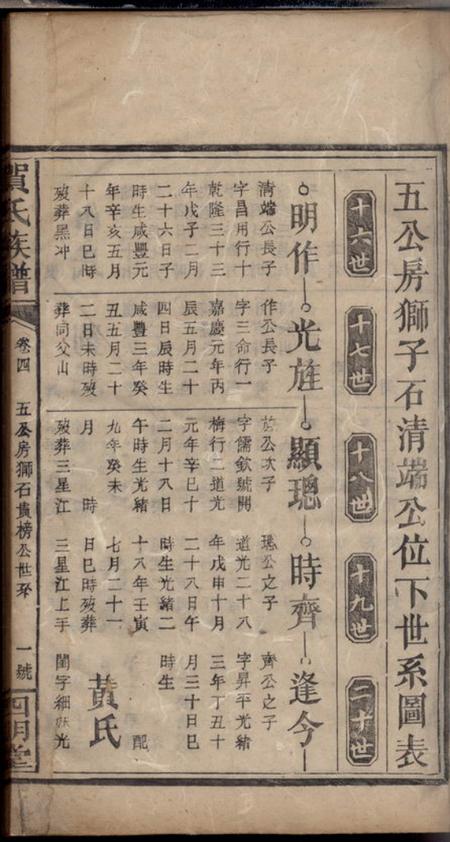 五公房獅子石清端公位下世系圖表
十六世 十七世 十八世 十九世 二十世
明作 光旌 顯璁 時齊 逢今
清端公長子
字昌用行十
乾隆三十三
年戊子二月
二十六日子
時生咸豐元
年辛亥五月
十八日巳時
歿葬黑冲
作公長子
字三命行一
嘉慶元年丙
辰五月二十
四日辰時生
咸豐三年癸
丑五月二十
二日未時歿
葬同父山
公次子
字儒欽號開
梅行二道光
元年辛巳十
二月十八日
午時生光緒
九年癸未
月 時
歿葬三星江
璁公之子
道光二十八
年戊申十月
二十八日午
時生光緒二
十八年壬寅
七月二十一
日巳時歿葬
三星江上手
齊公之子
字昇平光緒
三年丁丑十
月三十日巳
時生
配
黃氏
閨字細妹光
賀氏族譜 卷四 五公房獅石貴榜公世系 一號 四明堂